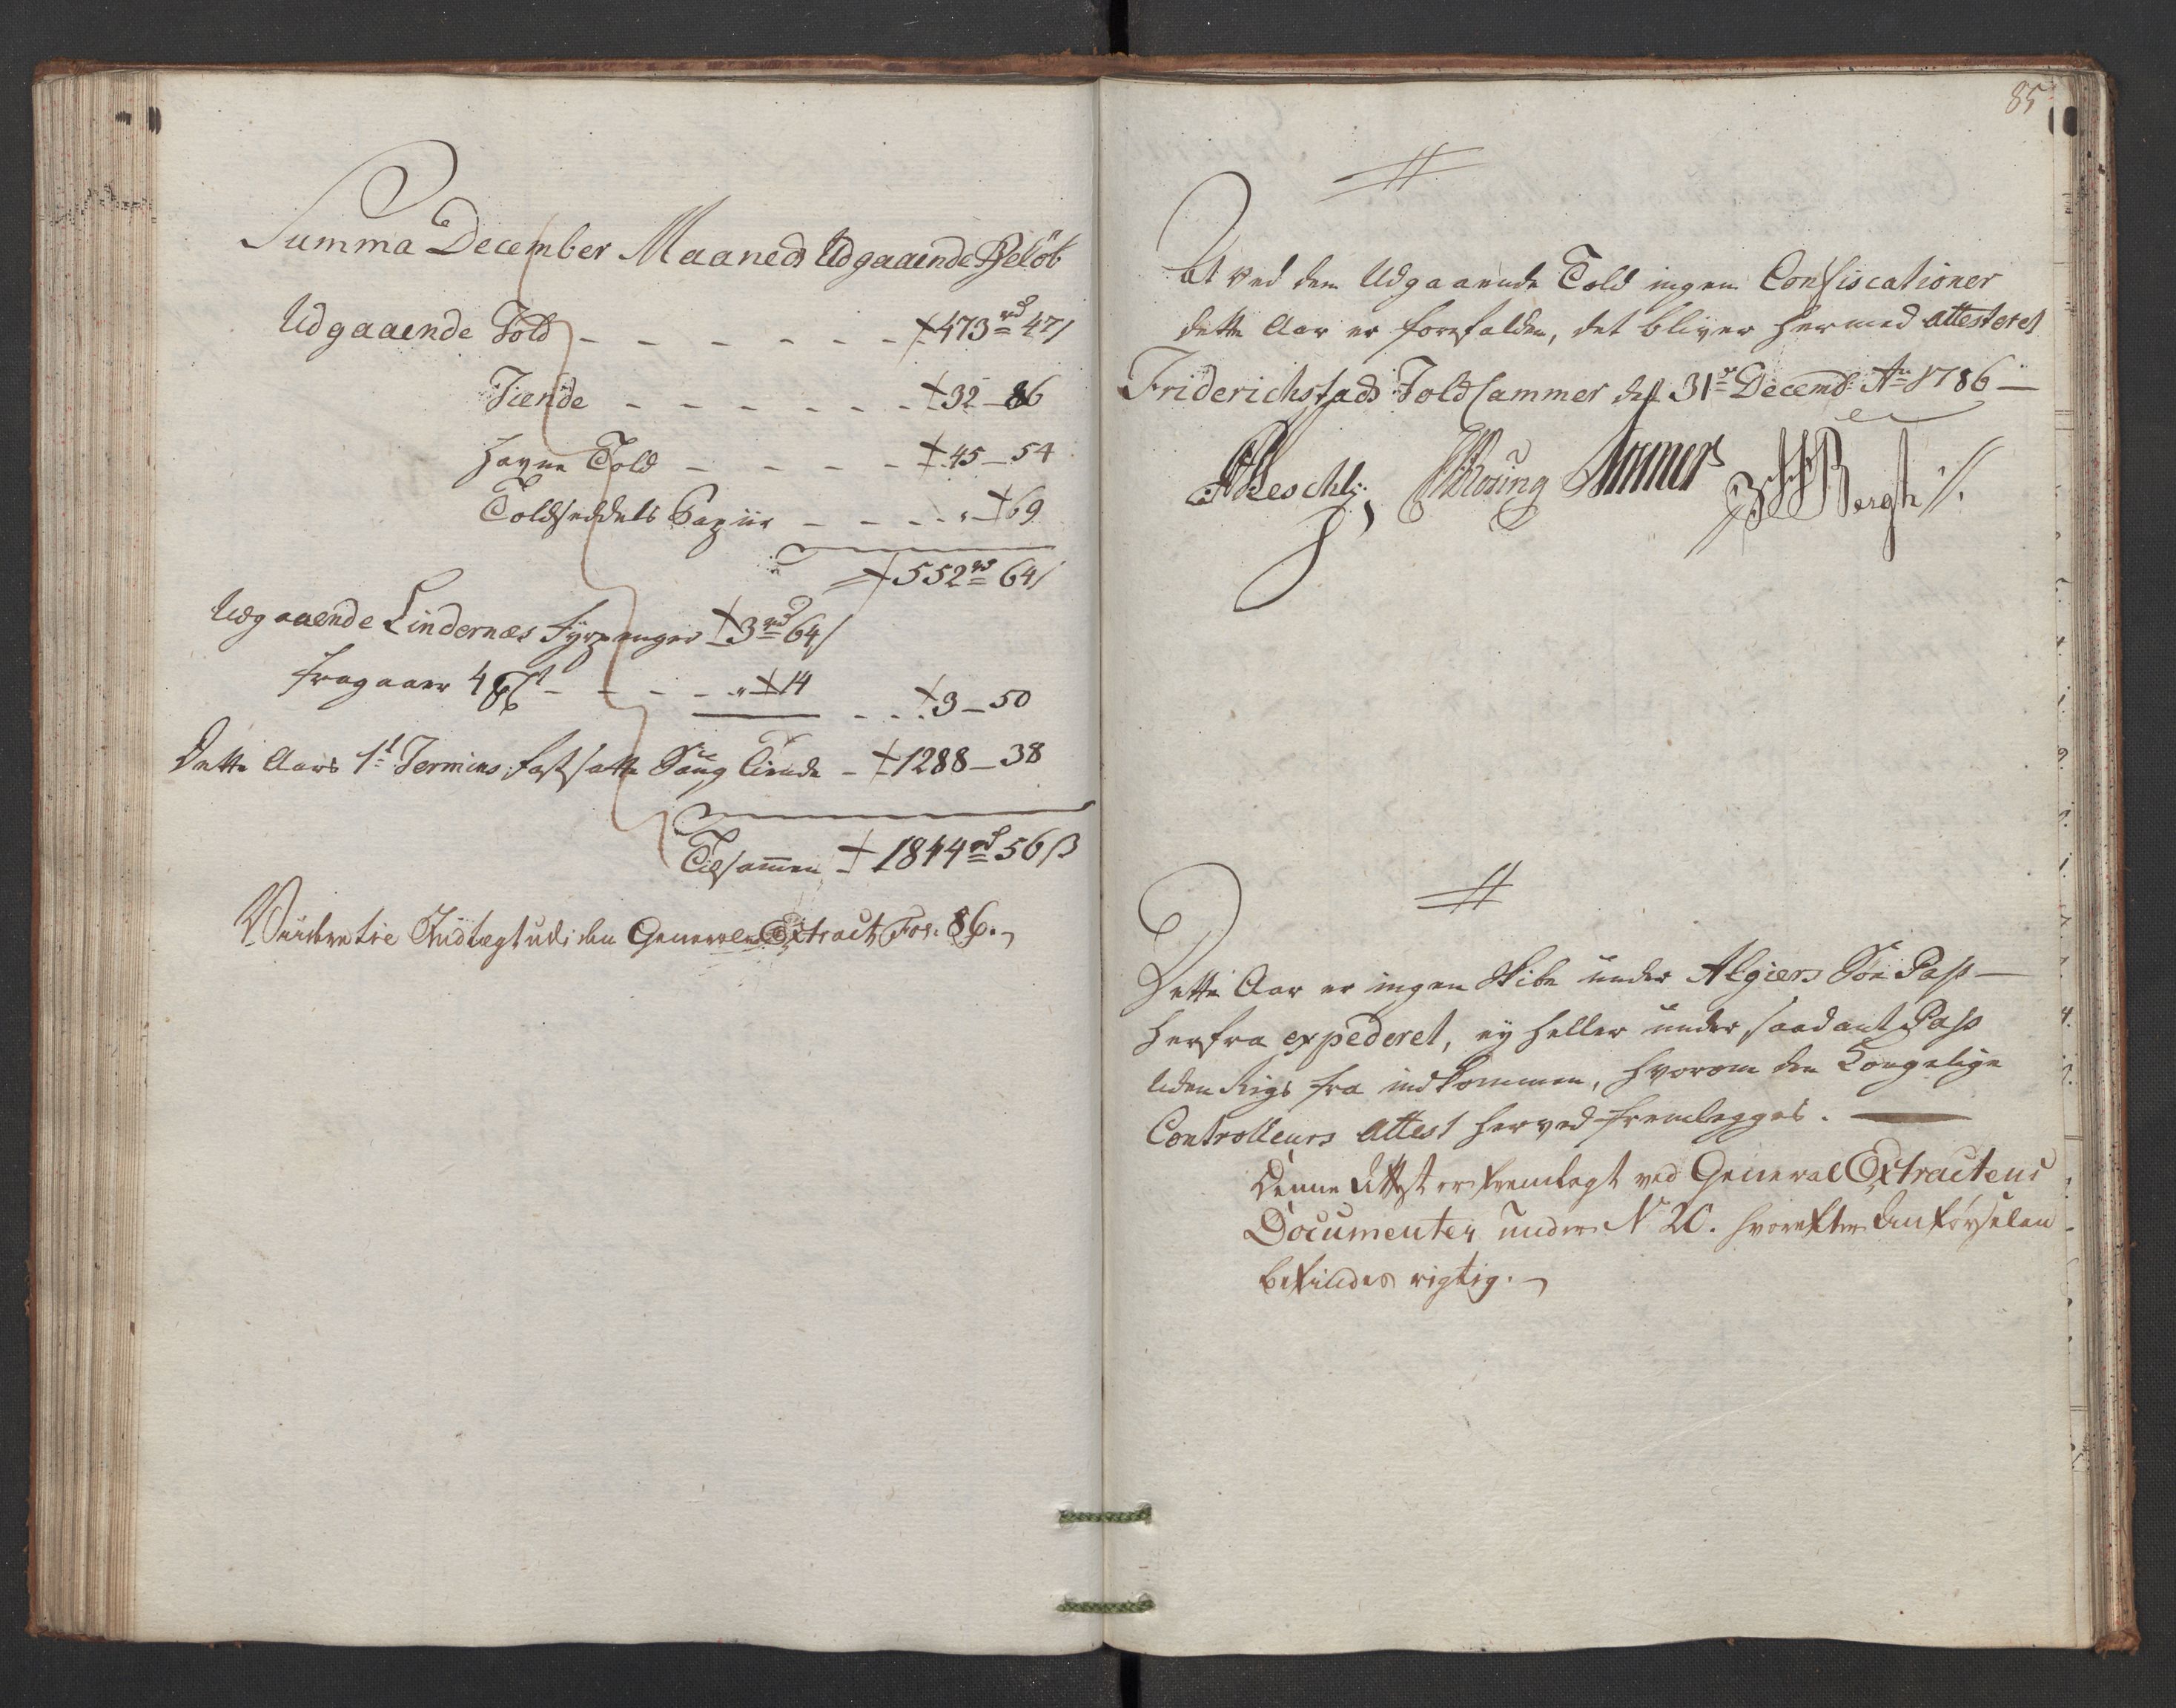 Summa December Maaneds Udgaaende Beløb
Udgaaende Told - - - - - - - 473 rd 47 s
Tiende - - - - - - - 32 - 86
Havne Told - - - - - 45 - 54
Toldseddels Papiir - - - - „ - 69
552 rd 64 s
Udgaaende Lindernæs Fyrpenger 3 rd 64 s
fragaaer 4 pCt - - - - - „ - 14 - - - 3 - 50
Dette Aars 1t Termins fastsatte Saug Tiende - 1288 - 38
Tilsammen 1844 rd 56 ß
Viidere til Indtægt udi den General Extract Fol: 86.
85
At ved den Udgaaende Told ingen Confiscationer
dette Aar er forefalden, det bliver hermed attesteret
Friderichstads Told Cammer d. 31te Decemb: Ao 1786 —
Bergh
Dette Aar er ingen Skibe under Algiers Søe Pass —
herfra expederet, ey heller under saadant Pass
Uden Rigs fra indkommen, hvorom den Kongelige
Controlleurs Attest herved fremlegges. —
Denne Attest er fremlagt ved General Extractens
Documenter under N 20. hvorefter Anførselen
befindes rigtig.